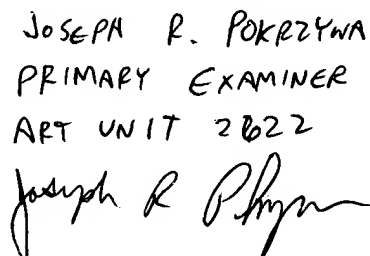 JOSEPH R. POKRZYWA
PRIMARY EXAMINER
ART UNIT 2622
Joseph R